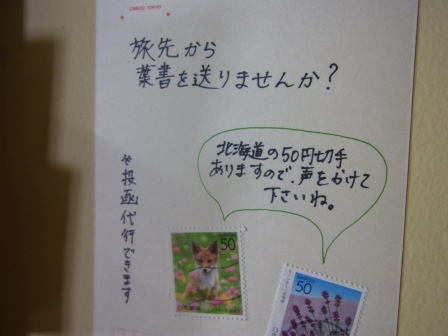 旅先から
葉書を送りませんか?
北海道の50円切手
ありますので、声をかけて
下さいね。
※投函代行できます
50
50